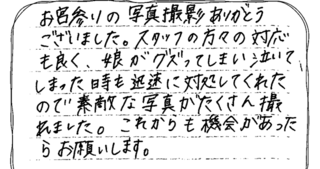 お宮参りの写真撮影ありがとう
ございました。スタッフの方々の対応
も良く、娘がグズってしまい泣いて
しまった時も迅速に対処してくれた
ので素敵な写真がたくさん撮
れました。これからも機会があった
らお願いします。